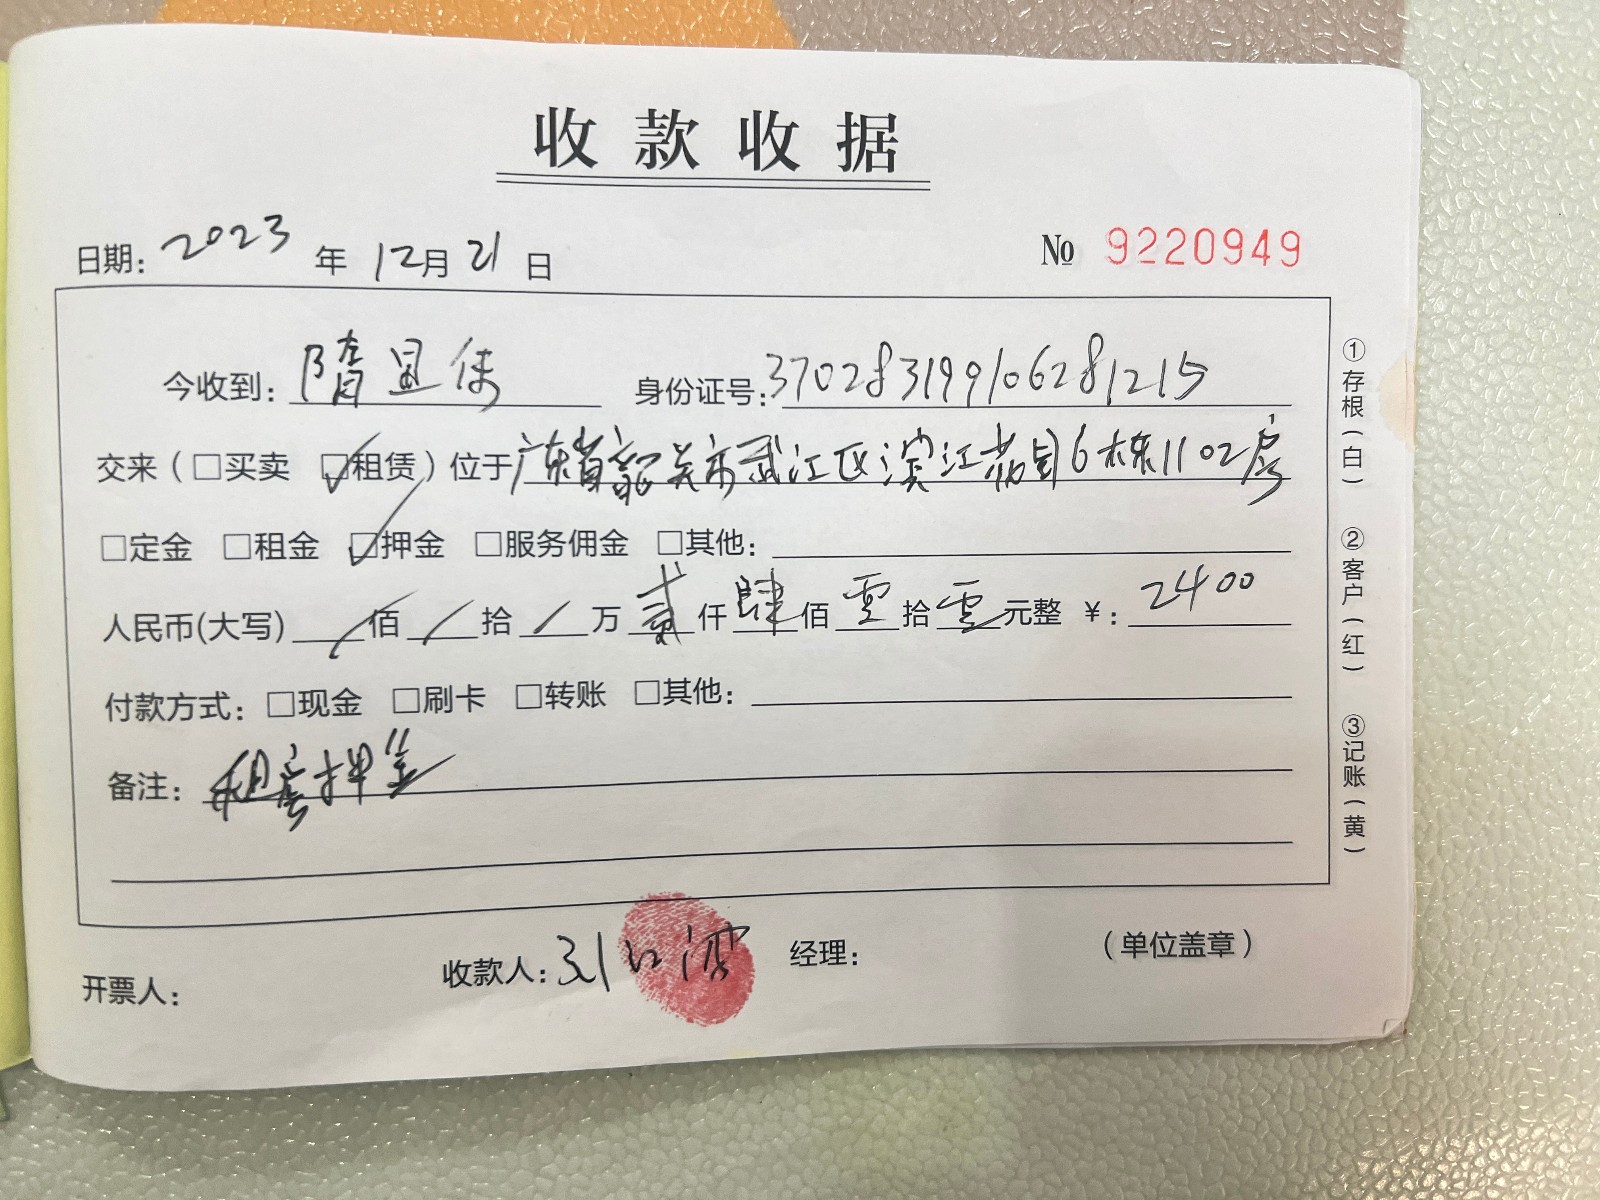 收款收据
日期：2023年12月21日 № 9220949
今收到：隋显侠 身份证号：370283199106281215
交来（□买卖 ☑租赁）位于广东省韶关市武江区滨江花园6栋1102房
□定金 □租金 ☑押金 □服务佣金 □其他：
人民币(大写) / 佰 / 拾 / 万 贰 仟 肆 佰 零 拾 零 元整 ¥：2400
付款方式：□现金 □刷卡 □转账 □其他：
备注：租房押金
开票人： 收款人：刘江波 经理： （单位盖章）
①存根（白） ②客户（红） ③记账（黄）